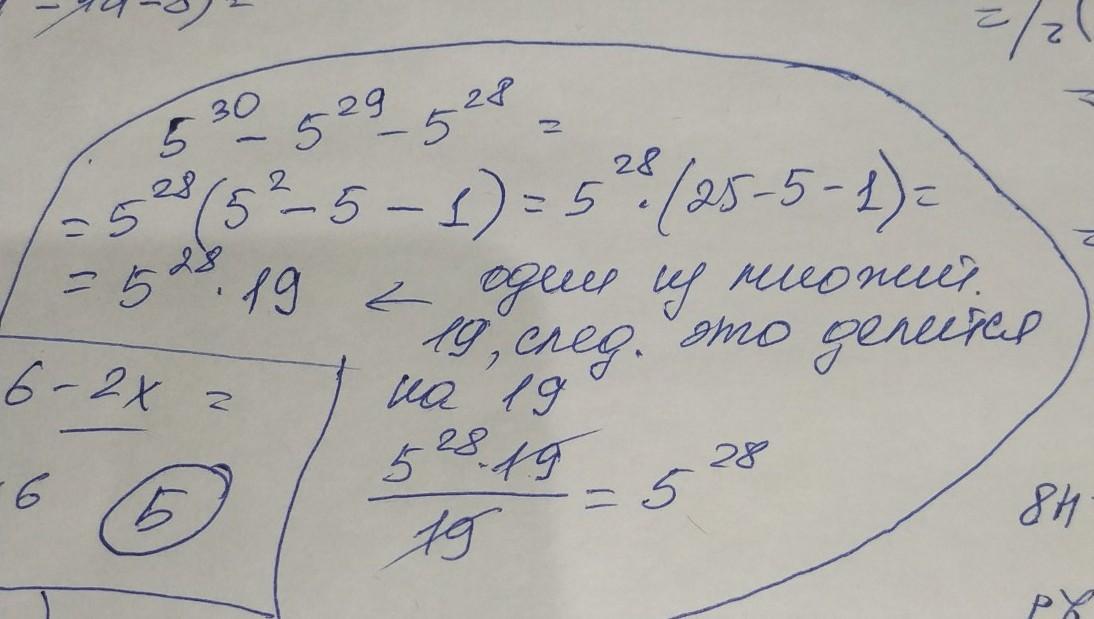 5³⁰ - 5²⁹ - 5²⁸ =
= 5²⁸(5² - 5 - 1) = 5²⁸ · (25 - 5 - 1) =
= 5²⁸ · 19 ← один из множит.
19, след. это делится
на 19
5²⁸ · 19 / 19 = 5²⁸
6 - 2x =
6 5
8н